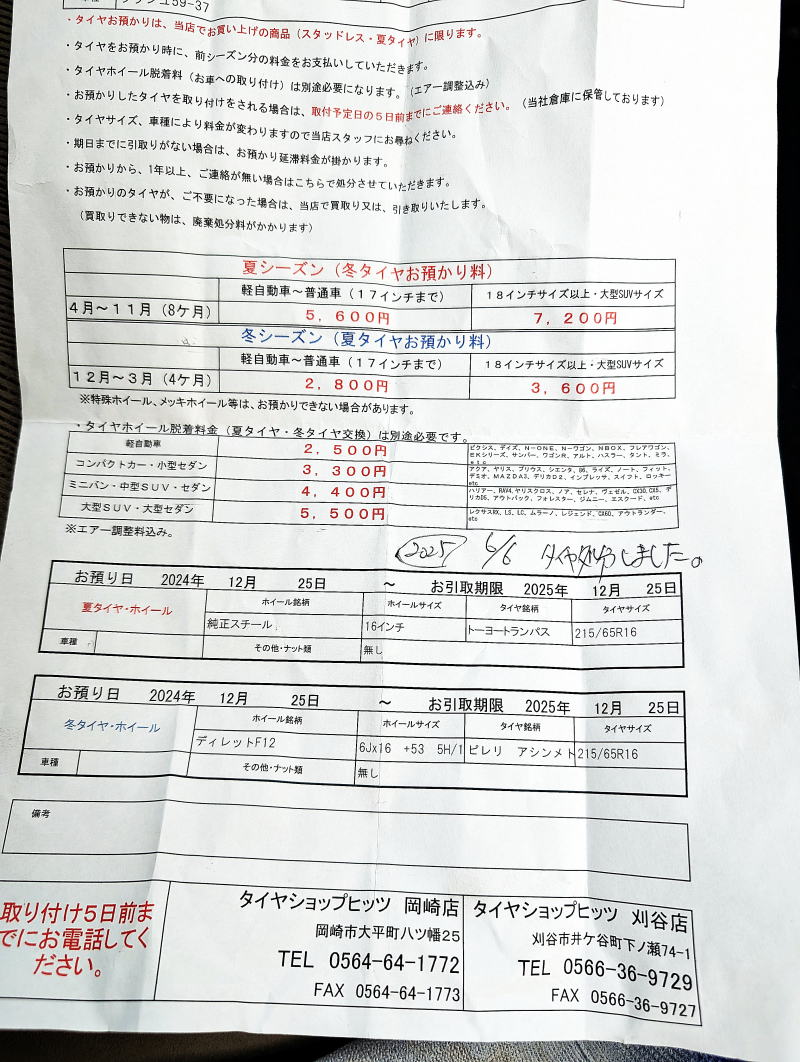 59-37
・タイヤお預かりは、当店でお買い上げの商品（スタッドレス・夏タイヤ）に限ります。
・タイヤをお預かり時に、前シーズン分の料金をお支払いしていただきます。
・タイヤホイール脱着料（お車への取り付け）は別途必要になります。（エアー調整込み）
・お預かりしたタイヤを取り付けをされる場合は、取付予定日の５日前までにご連絡ください。（当社倉庫に保管しております）
・タイヤサイズ、車種により料金が変わりますので当店スタッフにお尋ねください。
・期日までに引取りがない場合は、お預かり延滞料金が掛かります。
・お預かりから、1年以上、ご連絡が無い場合はこちらで処分させていただきます。
・お預かりのタイヤが、ご不要になった場合は、当店で買取り又は、引き取りいたします。
（買取りできない物は、廃棄処分料がかかります）
夏シーズン（冬タイヤお預かり料）
軽自動車～普通車（１７インチまで） １８インチサイズ以上・大型SUVサイズ
４月～１１月（8ケ月） ５，６００円 ７，２００円
冬シーズン（夏タイヤお預かり料）
軽自動車～普通車（１７インチまで） １８インチサイズ以上・大型SUVサイズ
１２月～３月（4ケ月） ２，８００円 ３，６００円
※特殊ホイール、メッキホイール等は、お預かりできない場合があります。
・タイヤホイール脱着料金（夏タイヤ・冬タイヤ交換）は別途必要です。
軽自動車 ２，５００円 ピクシス、デイズ、N－ONE、N－ワゴン、NBOX、フレアワゴン、
EKシリーズ、サンバー、ワゴンR、アルト、ハスラー、タント、ミラ、
etc
コンパクトカー・小型セダン ３，３００円 アクア、ヤリス、プリウス、シエンタ、86、ライズ、ノート、フィット、
デミオ、MAZDA3、デリカD2、インプレッサ、スイフト、ロッキー
etc
ミニバン・中型ＳＵＶ・セダン ４，４００円 ハリアー、RAV4、ヤリスクロス、ノア、セレナ、ヴェゼル、CX30、CX5、デ
リカD5、アウトバック、フォレスター、ジムニー、エスクード、etc
大型ＳＵＶ・大型セダン ５，５００円 レクサスRX、LS、LC、ムラーノ、レジェンド、CX60、アウトランダー、
etc
※エアー調整料込み。
2025 6/6 タイヤ処分しました。
お預り日 2024年 12月 25日 ～ お引取期限 2025年 12月 25日
夏タイヤ・ホイール ホイール銘柄 ホイールサイズ タイヤ銘柄 タイヤサイズ
純正スチール 16インチ トーヨートランパス 215/65R16
車種 その他・ナット類 無し
お預り日 2024年 12月 25日 ～ お引取期限 2025年 12月 25日
冬タイヤ・ホイール ホイール銘柄 ホイールサイズ タイヤ銘柄 タイヤサイズ
ディレットF12 6Jx16 +53 5H/1 ピレリ アシンメト 215/65R16
車種 その他・ナット類 無し
備考
取り付け５日前ま
でにお電話してく
ださい。
タイヤショップヒッツ 岡崎店
岡崎市大平町八ツ幡25
TEL 0564-64-1772
FAX 0564-64-1773
タイヤショップヒッツ 刈谷店
刈谷市井ケ谷町下ノ瀬74-1
TEL 0566-36-9729
FAX 0566-36-9727